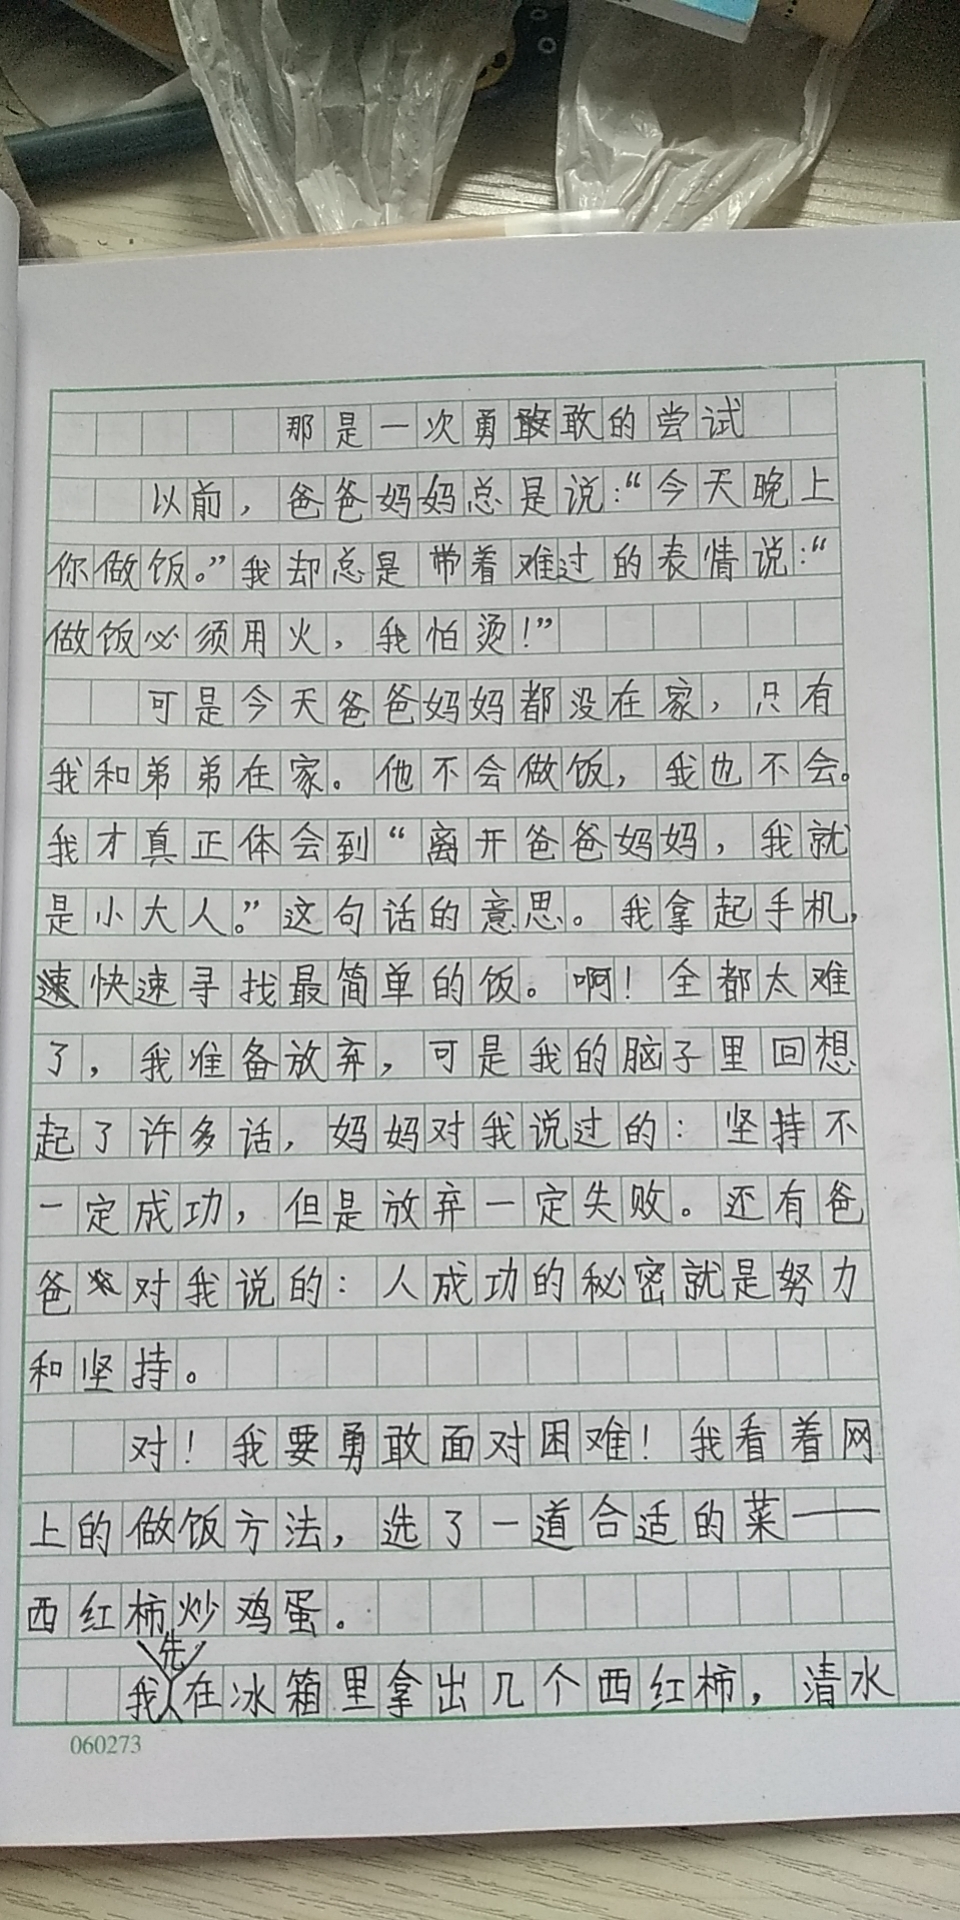 那是一次勇敢的尝试
以前，爸爸妈妈总是说：“今天晚上
你做饭。”我却总是带着难过的表情说：“
做饭必须用火，我怕烫！”
可是今天爸爸妈妈都没在家，只有
我和弟弟在家。他不会做饭，我也不会。
我才真正体会到“离开爸爸妈妈，我就
是小大人。”这句话的意思。我拿起手机，
快速寻找最简单的饭。啊！全都太难
了，我准备放弃，可是我的脑子里回想
起了许多话，妈妈对我说过的：坚持不
一定成功，但是放弃一定失败。还有爸
爸对我说的：人成功的秘密就是努力
和坚持。
对！我要勇敢面对困难！我看着网
上的做饭方法，选了一道合适的菜——
西红柿炒鸡蛋。
我先在冰箱里拿出几个西红柿，清水
060273